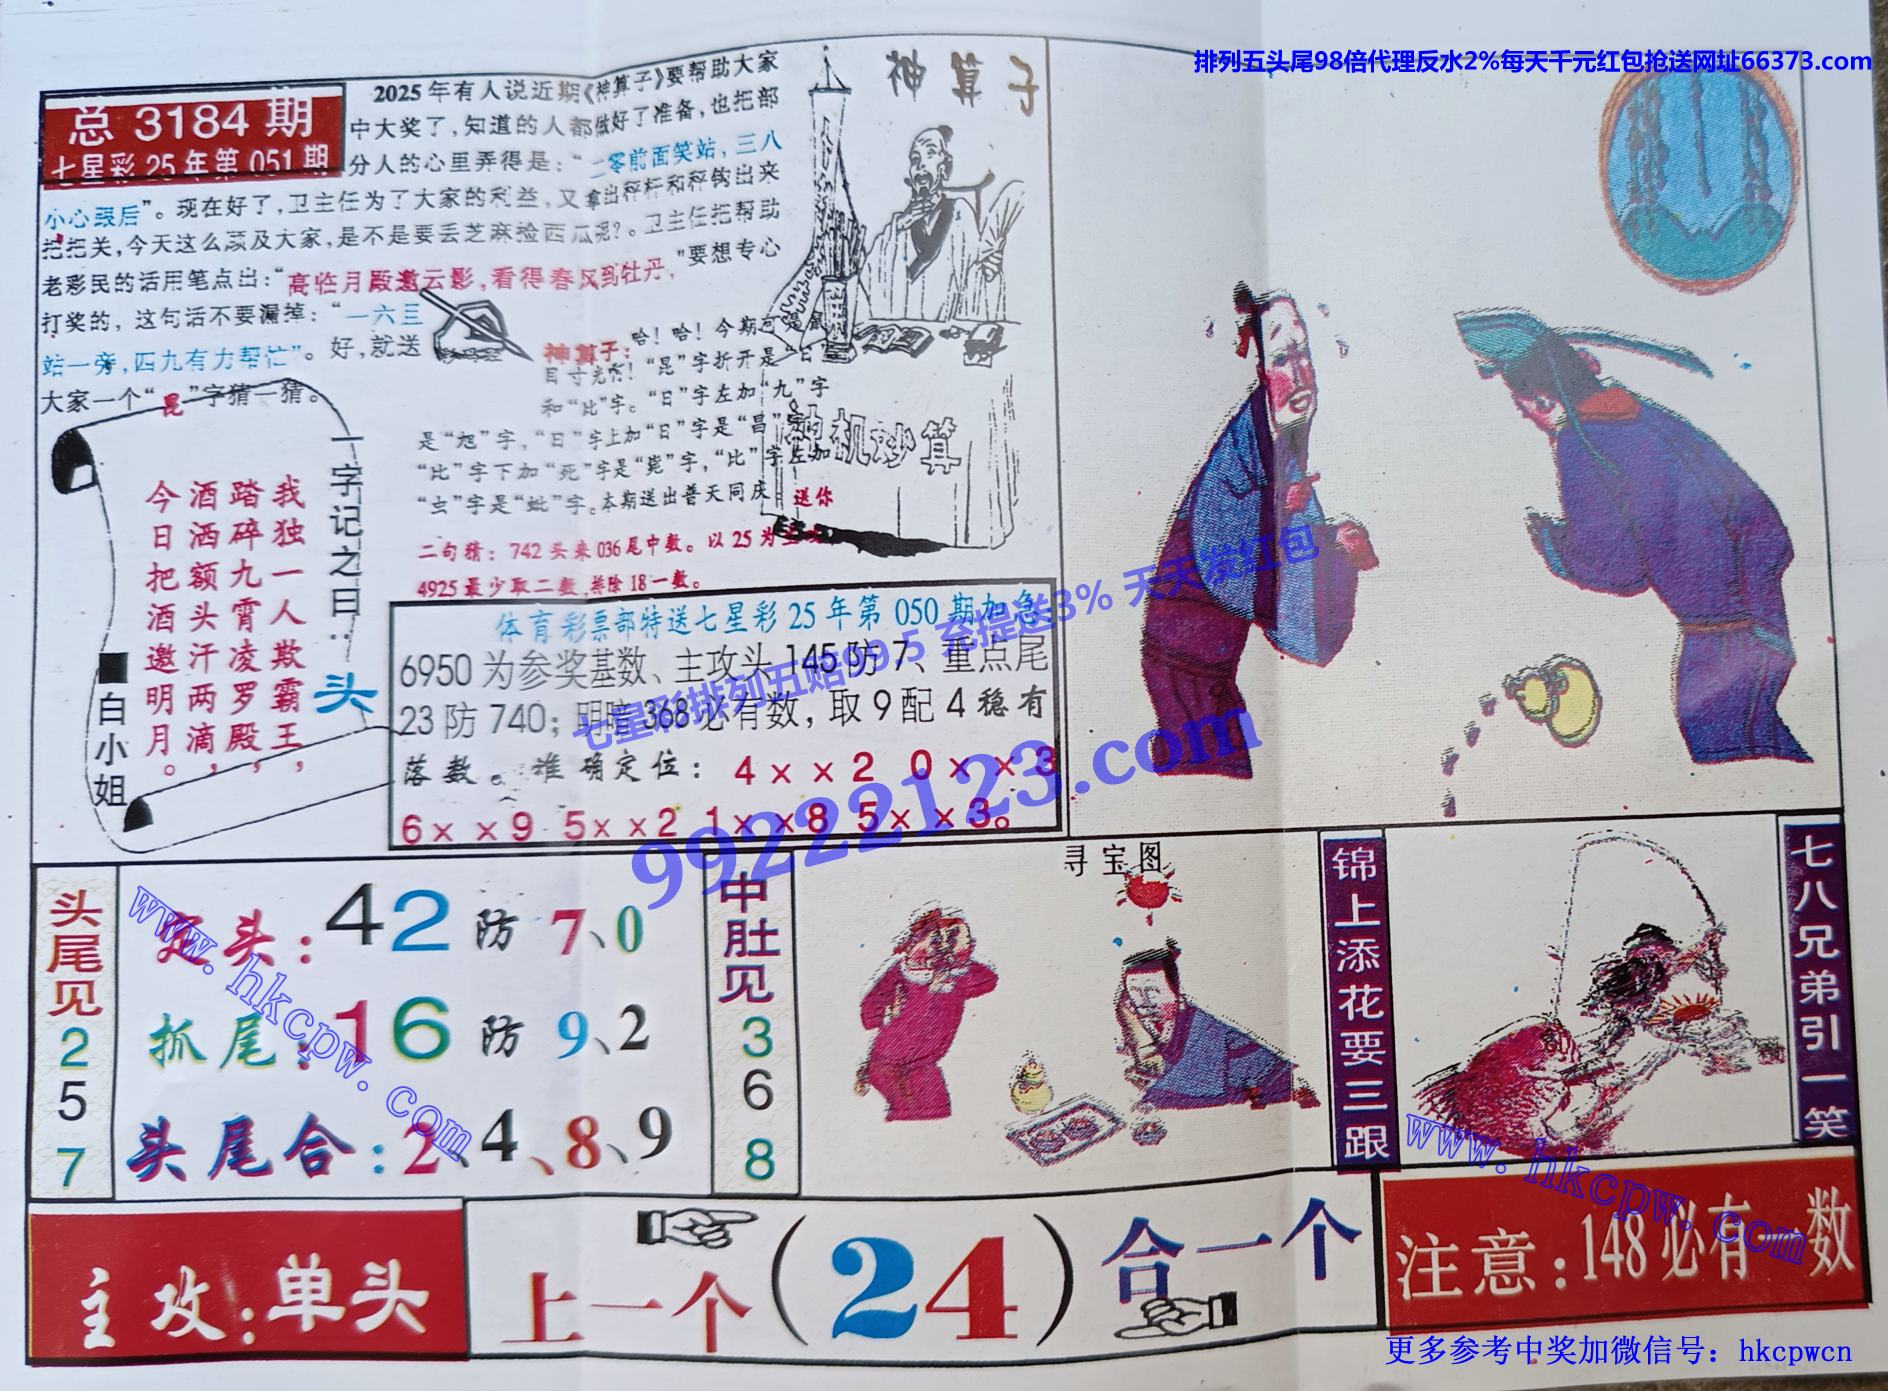 排列五头尾98倍代理反水2%每天千元红包抢送网址66373.com
总 3184 期
七星彩 25 年第 051 期
2025年有人说近期《神算子》要帮助大家
中大奖了，知道的人都做好了准备，也把部
分人的心里弄得是：“二零前面笑站，三八
小心跟后”。现在好了，卫主任为了大家的利益，又拿出秤杆和秤钩出来
把把关，今天这么顾及大家，是不是要丢芝麻捡西瓜呢？。卫主任把帮助
老彩民的话用笔点出：“高临月殿邀云影，看得春风到牡丹，”要想专心
打奖的，这句话不要漏掉：“一六三
站一旁，四九有力帮忙”。好，就送
大家一个“昆”字猜一猜。
神算子
神算子：哈！哈！今期可是鼠
目寸光啊！“昆”字折开是“日”
和“比”字。“日”字左加“九”字
是“旭”字，“日”字上加“日”字是“昌”字
“比”字下加“死”字是“毙”字，“比”字左加
“虫”字是“蚍”字。本期送出普天同庆 送你
二句猜：742头来036尾中数。以25为主
4925最少取二数，排除18一数。
神机妙算
一字记之曰：头
我独一人欺霸王，
踏碎九霄凌罗殿，
酒洒额头汗两滴，
今日把酒邀明月。
■白小姐
体育彩票部特送七星彩25年第050期加急
6950为参奖基数、主攻头145防7、重点尾
23防740；明暗368必有数，取9配4稳有
落数。准确定位：4××2 0××3
6××9 5××2 1××8 5××3。
七星彩排列五赔99.5 充提送3% 天天发红包
99222123.com
头尾见257
头：42防7、0
抓尾：16防9、2
头尾合：2、4、8、9
www.hkcpw.com
中肚见368
寻宝图
锦上添花要三跟
七八兄弟引一笑
www.hkcpw.com
主攻：单头
上一个（24）合一个
注意：148必有一数
更多参考中奖加微信号：hkcpwcn